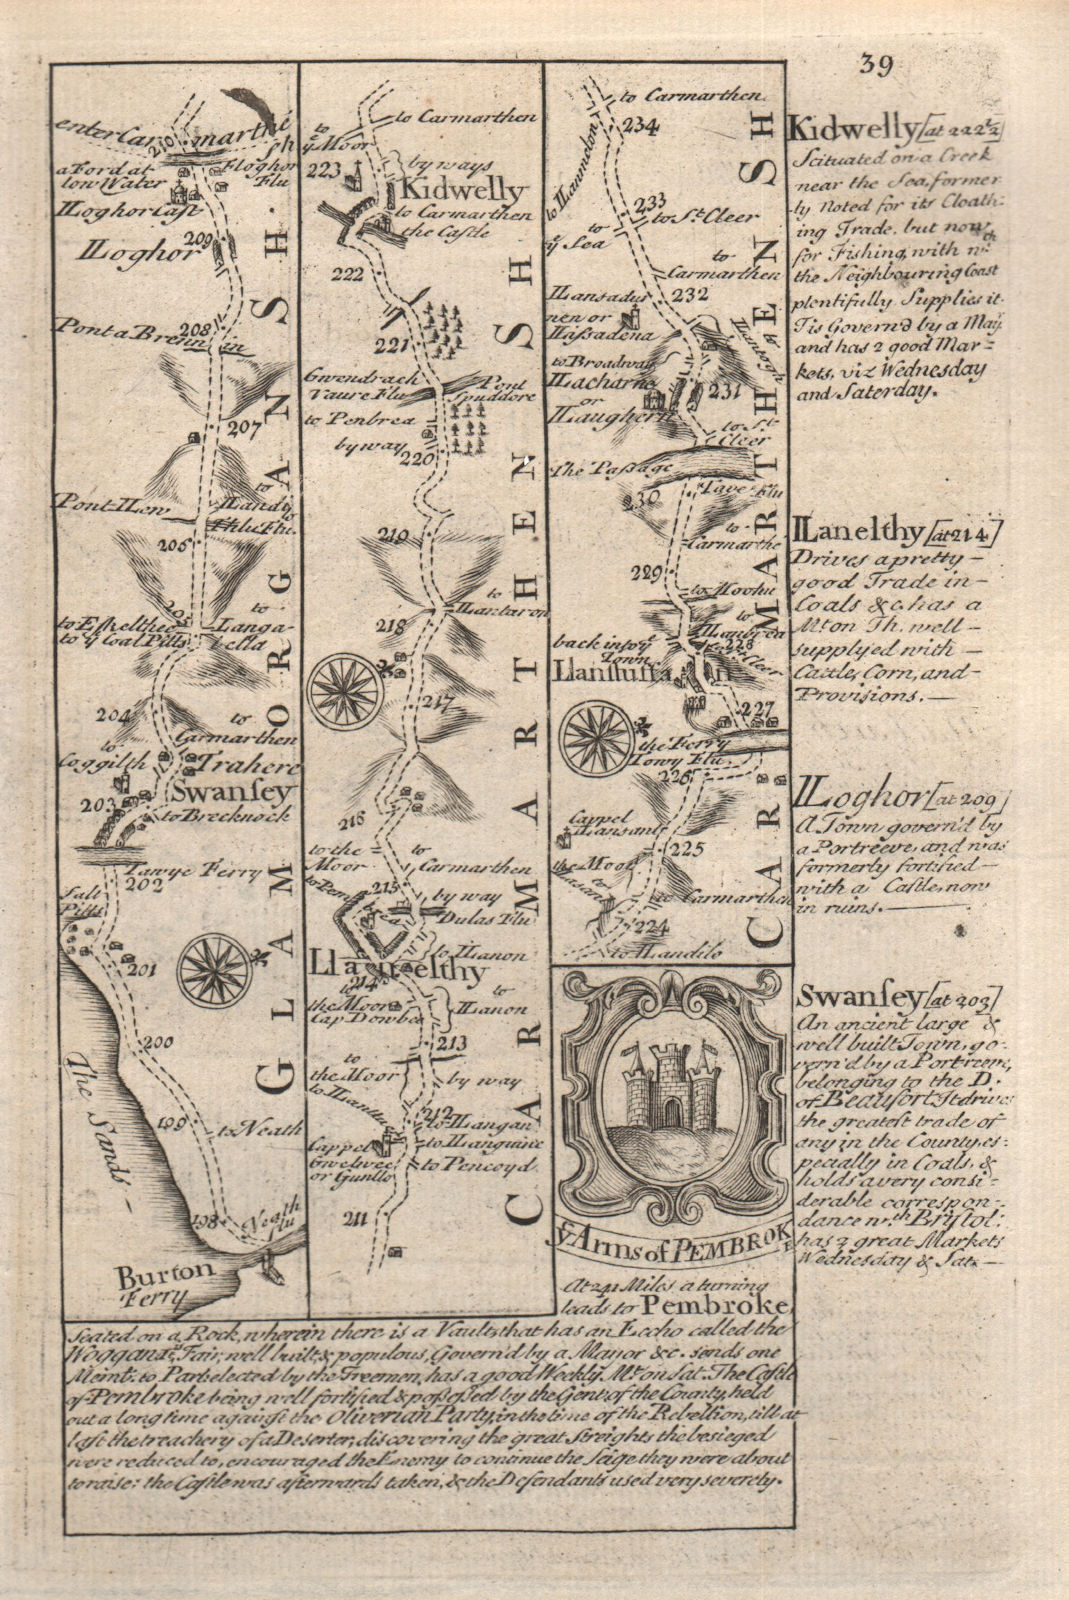 39
enter Car marthe
sh
210
a Ford at
low Water
Floghor
Flu
ILoghor Cast
209
ILoghor
208
Ponta Brenn in
207
Pont ILew
to
ILandy
lo
Fhlu Flu.
206
205
to
Langa=
vella
to ye Coal Pitts
204
to
Carmarthen
to
Coggilth
Trahere
Swansey
203
to Brecknock
Tawye Ferry
202
Salt
Pitts
201
200
The Sands
199
to Neath
198
Neath
flu
Burton
Ferry
GLAMORGANSH.
to
ye Moor
to Carmarthen
223
by ways
Kidwelly
to Carmarthen
the Castle
222
221
Gwendrach
Vaure Flu
Pont
Spuddore
to Penbrea
by way
220
219
to
ILantaron
218
217
216
to the
Moor
to
Carmarthen
to Pen
brea
215
by way
Dulas Flu
to ILanon
Lla nelthy
214
to
the Moor
Cap Dowbe
to
ILanon
213
to
the Moor
by way
212
to ILangan
to ILanguine
Cappel
Gwelwec
or Gunllo
to Pencoyd
211
CARMARTHENSH
to Carmarthen
234
233
to St. Cleer
to
ye Sea
to
Carmarthen
ILansadur
nen or
ILassadena
232
to Broadway
ILacharne
or
ILaughern
231
to St.
Cleer
The Passage
230
Tave Flu
to
Carmarthe
229
to
228
back into ye
Town
Llanstuffa
227
the Ferry
Towy Flu.
226
Cappel
ILansant
225
the Moor
to
Carmarthen
224
to ILandilo
CARMARTHENSH
ye Arms of PEMBROKE
At 241 Miles a turning
leads to Pembroke
Seated on a Rock, wherein there is a Vault that has an Eccho called the
Woggan: 'tis Fair, well built & populous, Govern'd by a Mayor &c. sends one
Memb.r to Parl. elected by the Freemen, has a good Weekly Mt. on Sat. The Castle
of Pembroke being well fortified & possessed by the Gent. of the County, held
out a long time against the Oliverian Party, in the time of the Rebellion, till at
last the treachery of a Deserter, discovering the great Streights the besieged
were reduced to, encouraged the Enemy to continue the Seige they were about
to raise: the Castle was afterwards taken, & the Defendants used very severely.
Kidwelly [at 222½]
Scituated on a Creek
near the Sea, former
ly Noted for its Cloath=
ing Trade, but now
for Fishing, with wch.
the Neighbouring Coast
plentifully Supplies it
Tis Govern'd by a May.r
and has 2 good Mar=
kets, viz Wednesday
and Saterday.
ILanelthy [at 214]
Drives a pretty —
good Trade in —
Coals &c. has a
Mt. on Th. well —
supplyed with —
Cattle, Corn, and —
Provisions. —
ILoghor [at 209]
A Town govern'd by
a Portreeve, and was
formerly fortified —
with a Castle, now
in ruins. —
Swansey [at 203]
An ancient large &
well built Town, go=
vern'd by a Portreeve,
belonging to the D.
of Beaufort. It drives
the greatest trade of
any in the County, es=
pecially in Coals, &
holds a very consi=
derable correspon=
dance wth. Brystol:
has 2 great Markets
Wednesday & Sat. —